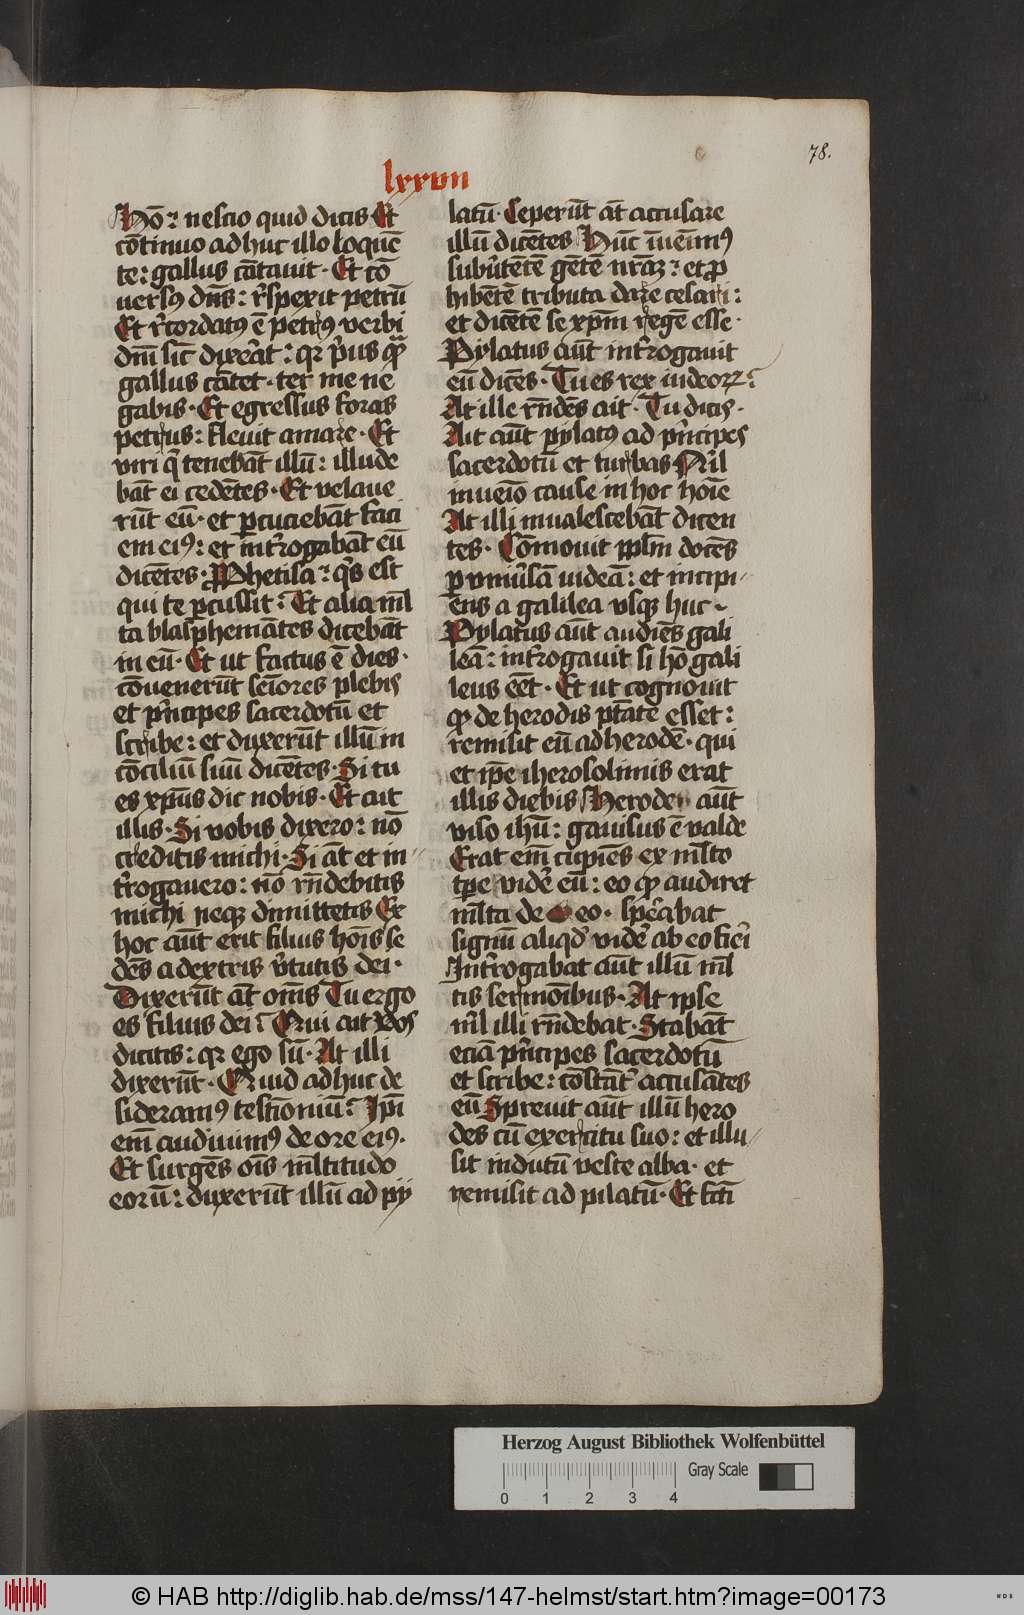 78.
lxxvii
Hō: nescio quid dicis Et
cōtinuo adhuc illo loquē
te: gallus cātauit. Et cō
uersꝰ dn̄s: r̄spexit petrū
Et r̄cordatꝰ ē petrꝰ verbi
dn̄i sic̄ dixẽat: qr p̄us qꝫ
gallus cātet. ter me ne
gabis. Et egressus foras
petrus: fleuit amare. Et
viri q̄ tenebāt illū: illude
bāt ei cedētes. Et velaue
rūt eū. et ꝑcuciebāt faci
em eiꝰ: et int̄rogabāt eū
dicētes. Prophetisa: q̄s est
qui te ꝑcussit: Et alia ml̄
ta blasphemātes dicebāt
in eū. Et ut factus ē dies.
cōuenerūt sēiores plebis
et p̄ncipes sacerdotū et
scribe: et duxerūt illū in
cōciliū suū dicētes. Si tu
es xp̄us dic nobis. Et ait
illis. Si vobis dixero: nō
creditis michi. Si āt et in-
t̄rogauero: nō rn̄debitis
michi neqꝫ dimittetis Ex
hoc aūt erit filius hoīs se
dēs a dextris v̄tutis dei.
Dixerūt āt om̄s Tu ergo
es filius dei: Qui ait Vos
dicitis: qr ego sū. At illi
dixerūt. Quid adhuc de
sideramꝰ testīoniū: Ip̄i
em̄ audiuimꝰ de ore eiꝰ.
Et surgēs oīs ml̄titudo
eorū: duxerūt illū ad py
latū. Ceperūt āt accusare
illū dicētes Hūc īuēimꝰ
subūtētē gētē nr̄aꝫ: et ꝓ
hibētē tributa dare cesari:
et dicētē se xp̄m regē esse.
Pylatus aūt int̄rogauit
eū dicēs. Tu es rex iudeorꝝ:
At ille rn̄dēs ait. Tu dicis.
Ait aūt pylatꝰ ad p̄ncipes
sacerdotū et turbas Nīl
inueīo cause in hoc hoīe
At illi inualescebāt dicen
tes. Cōmouit ppl̄m docēs
ꝑ vniūsā iudeā: et incipi-
ens a galilea vsqꝫ huc.
Pylatus aūt audiēs gali
leā: int̄rogauit si hō gali
leus eēt. Et ut cognouit
qꝫ de herodis ptātē esset:
remisit eū ad herodē. qui
et ip̄e iherosolimis erat
illis diebis Herodes aūt
viso ihū: gauisus ē valde
Erat em̄ cupiēs ex ml̄to
tꝑe vidē eū: eo qꝫ audiret
ml̄ta de eo. sꝑabat
signū aliqd̄ vidē ab eo fieri
Int̄rogabat aūt illū ml̄
tis sermōibus. At ipse
nīl illi rn̄debat. Stabāt
eciā p̄ncipes sacerdotū
et scribe: cōstāt̄ accusātes
eū Spreuit aūt illū hero
des cū exercitu suo: et illu-
sit indutū veste alba. et
remisit ad pilatū. Et fc̄ti
Herzog August Bibliothek Wolfenbüttel
Gray Scale
0 1 2 3 4
© HAB http://diglib.hab.de/mss/147-helmst/start.htm?image=00173